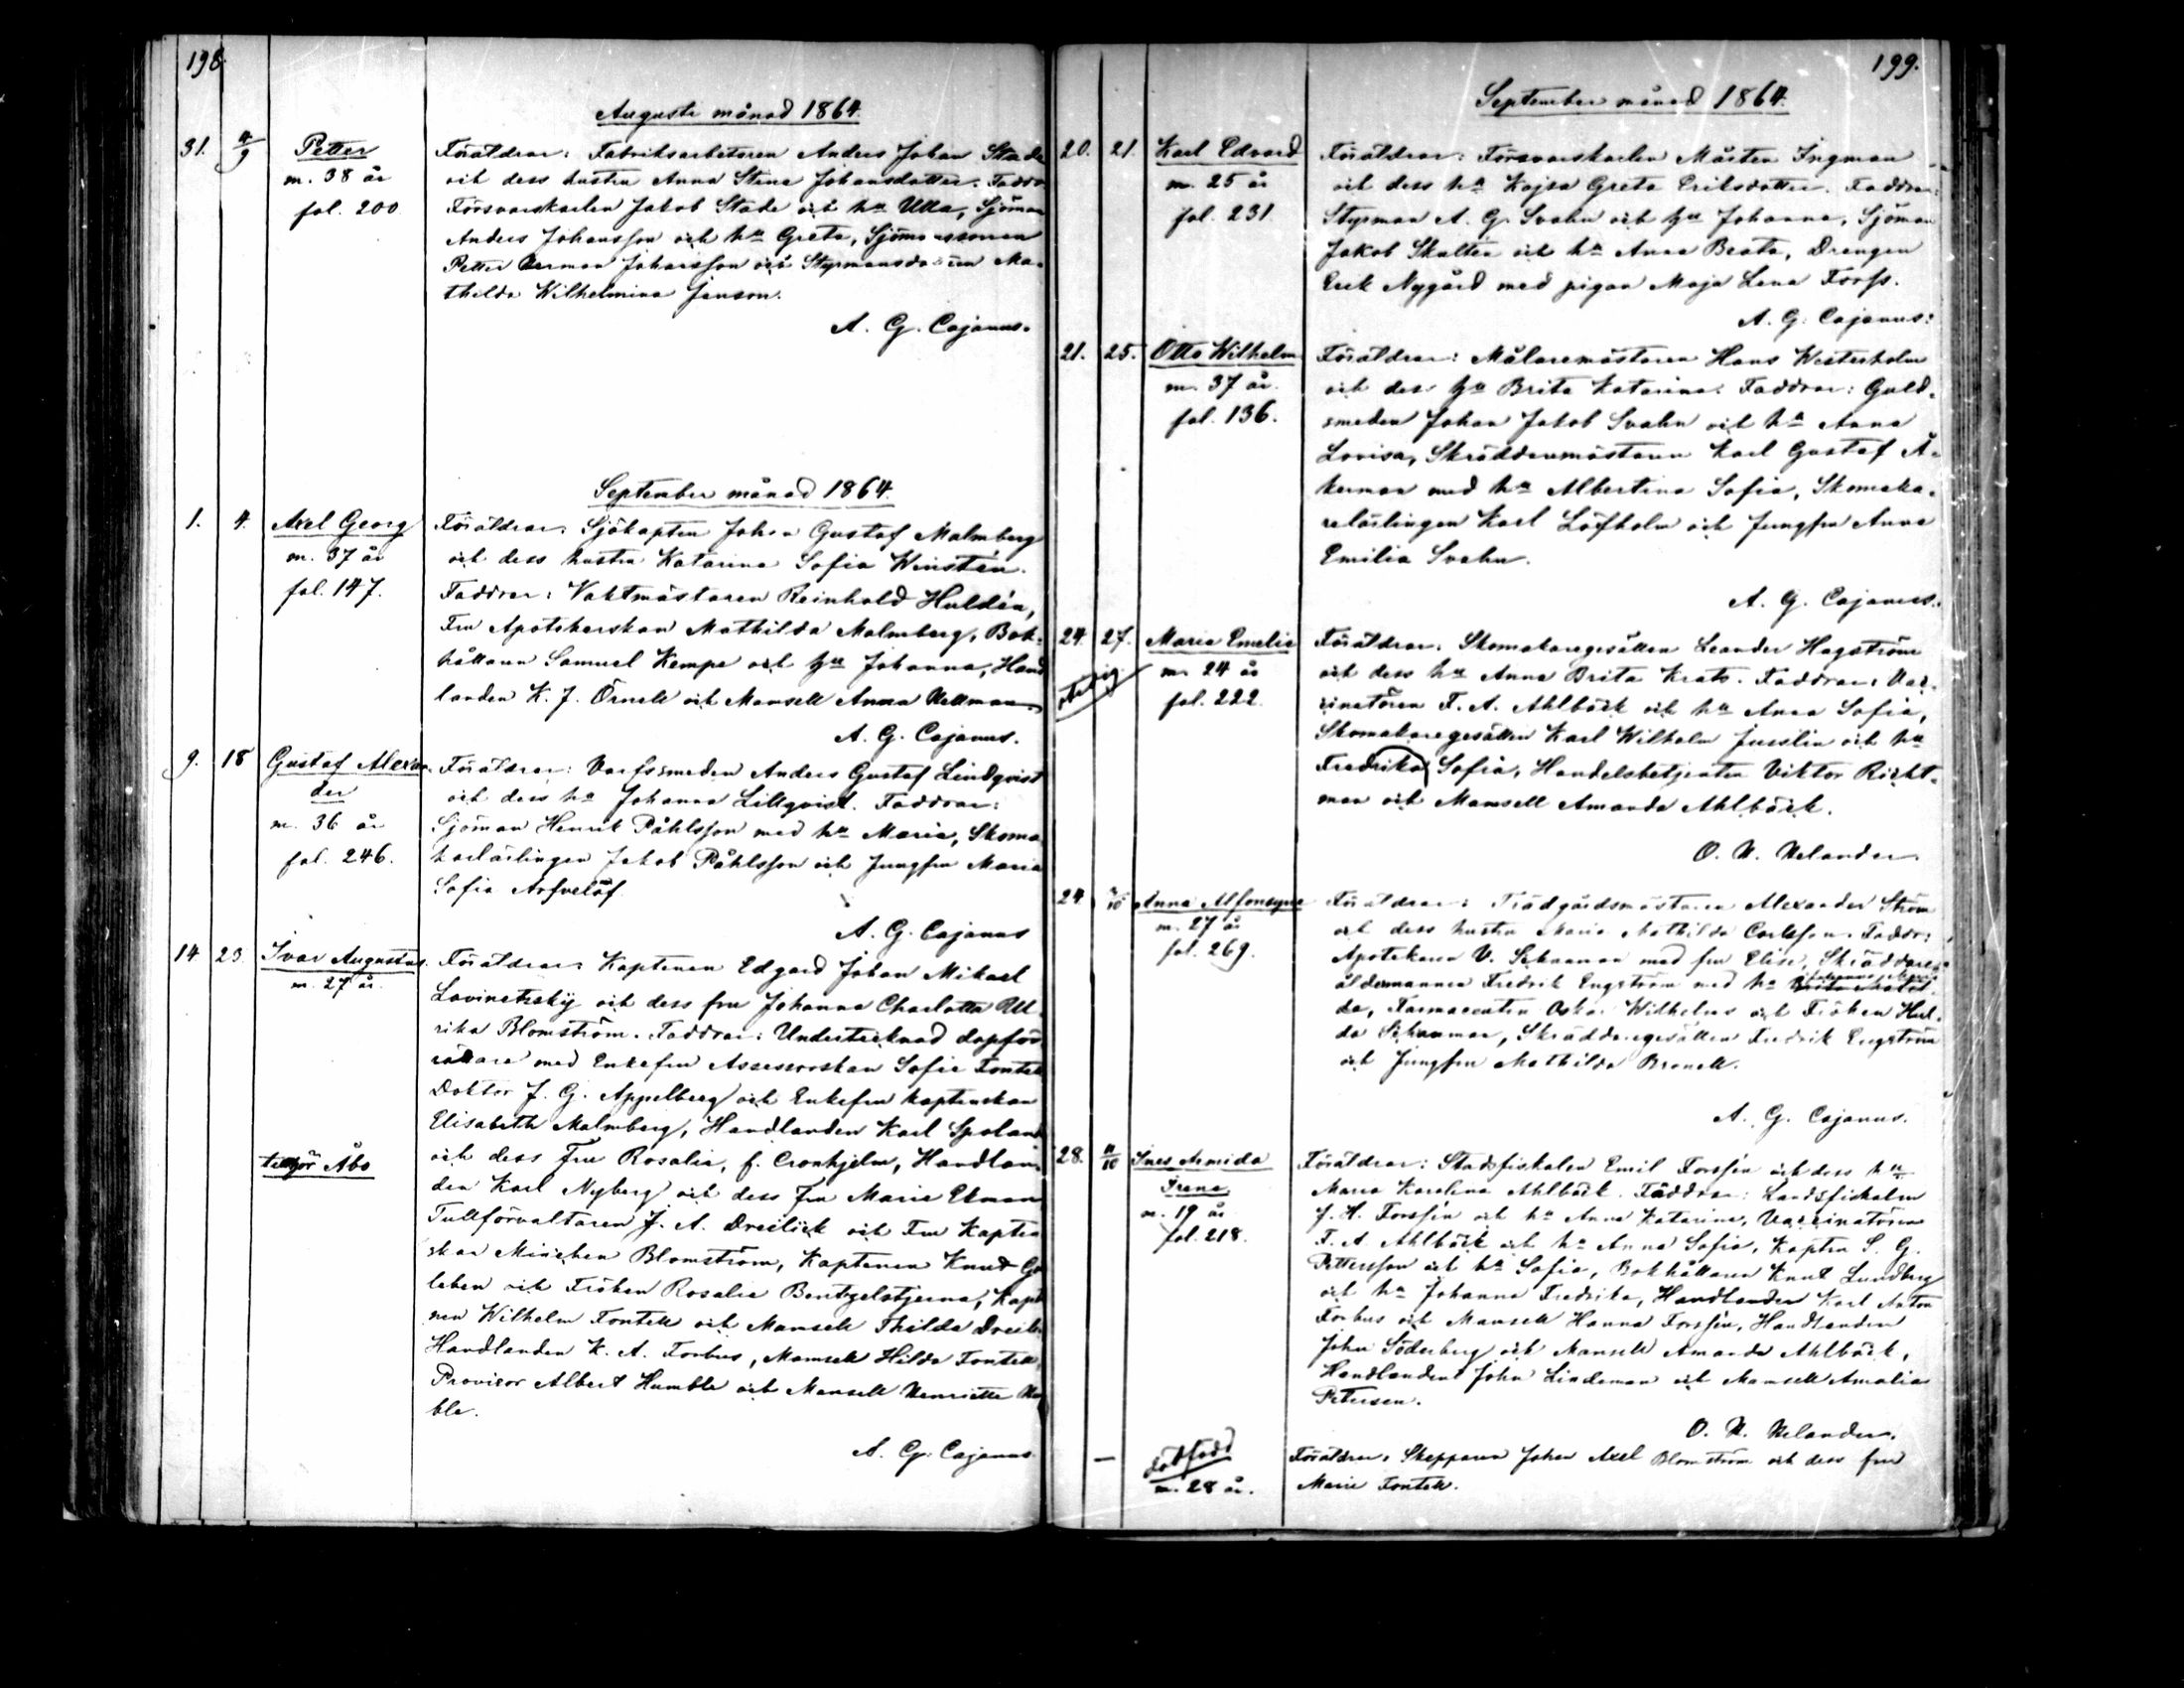 198.
Augusti månad 1864.
31. 4/9 Petter Föräldrar: Fabriksarbetaren Anders Johan Stade
m. 38 år och dess hustru Anna Stina Johansdotter. Faddr.
fol. 200 Försvarskarlen Jakob Stade och hu Ulla, Sjöman
Anders Johansson och hu Greta, Sjömanssonen
Petter Herman Johansson och Ma-
thilda Wilhelmina Janson.
A. G. Cajanus.
September månad 1864.
1. 4. Axel Georg Föräldrar: Sjökapten Johan Gustaf Malmberg
m. 37 år och dess hustru Katarina Sofia Winstén.
fol. 147. Faddrar: Vaktmästaren Reinhold Huldén,
Fru Apotekerskan Mathilda Malmberg, Bok-
hållaren Samuel Kempe och hu Johanna, Hand
landen K. J. Örnell och Mamsell Anna Nellman
A. G. Cajanus.
9. 18 Gustaf Alexan- Föräldrar: Varfssmeden Anders Gustaf Lindqvist
der och dess hu Johanna Lillqvist. Faddrar:
m. 36 år Sjöman Henrik Påhlsson med hu Maria, Skoma
fol. 246. karlärlingen Jakob Påhlsson och Jungfru Maria
Sofia Arfvelöf
A. G. Cajanus
14 23 Ivar Augustus Föräldrar: Kaptenen Edgard Johan Mikael
m. 27 år. Lovinetsky och dess fru Johanna Charlotta Ul
rika Blomström. Faddrar: Undertecknad dopför
rättare med Enkefru Assessorskan Sofie Fontell
Doktor J. G. Appelberg och Enkefru Kaptenskan
Elisabeth Malmberg, Handlanden Karl Spoland
tillhör Åbo och dess Fru Rosalie, f. Cronhjelm, Handlan
den Karl Nyberg och dess Fru Maria Ekman
Tullförvaltaren J. A. Dreilick och Fru Kapten
skan Minchen Blomström, Kaptenen Knud Go
leben och Fröken Rosalie Bentzelstjerna, Kapt
nen Wilhelm Fontell och Mamsell Thilda Dreili
Handlanden K. A. Forbus, Mamsell Hilda Fontell,
Provisor Albert Humble och Mamsell Henriette Hum
ble.
A. G. Cajanus
199.
September månad 1864.
20. 21. Karl Edvard Föräldrar: Försvarskarlen Mårten Ingman
m. 25 år och dess hu Kajsa Greta Eriksdotter. Faddrar:
fol. 231 Styrman A. G. Svahn och hu Johanna, Sjöman
Jakob Skulten och hu Anna Beata, Drengen
Erik Nygård med pigan Maja Lena Forss.
A. G. Cajanus:
21. 25. Otto Wilhelm Föräldrar: Målaremästaren Hans Westerholm
m. 37 år. och dess hu Brita Katarina. Faddrar: Guld-
fol. 136. smeden Johan Jakob Svahn och hu Anna
Lovisa, Skräddarmästaren Karl Gustaf Å-
kerman med hu Albertina Sofia, Skomaka-
relärlingen Karl Löfholm och Jungfru Anna
Emilia Svahn.
A. G. Cajanus.
24. 27. Maria Emelie Föräldrar: Skomakaregesällen Leander Hagström
m. 24 år och dess hu Anna Brita Krats. Faddrar: Vac-
fol. 222. cinatören F. A. Ahlbäck och hu Anna Sofia,
Skomakaregesällen Karl Wilhelm Juselin och hu
Fredrika Sofia, Handelsbetjenten Viktor Richt-
man och Mamsell Amanda Ahlbäck.
O. N. Nelander
24. /10 Anna Alfonsyne Föräldrar: Trädgårdsmästaren Alexander Ström
m. 27 år och dess hustru Maria Mathilda Carlsson. Faddr:
fol. 269. Apotekaren V. Schauman med fru Elise, Skräddare-
åldermannen Fredrik Engström med hu
da, Farmaceuten Oskar Wilhelms och Fröken Hil-
da Schauman, Skräddaregesällen Fredrik Engström
och Jungfru Mathilda Brunell.
A. G. Cajanus.
28. /10 Ines Armida Föräldrar: Stadsfiskalen Emil Forssén och dess hu
Irene Maria Karolina Ahlbäck. Faddrar: Landsfiskalen
m. 19 år J. H. Forssén och hu Anna Katarina, Vaccinatören
fol. 218. F. A. Ahlbäck och hu Anna Sofia, Kapten S. G.
Pettersson och hu Sofia, Bokhållaren Knut Lundberg
och hu Johanna Fredrika, Handlanden Karl Anton
Forbus och Mamsell Hanna Forssén, Handlanden
John Söderberg och Mamsell Amanda Ahlbäck,
Handlanden John Lindeman och Mamsell Amalia
Petersen.
O. N. Nelander.
— dödfödd Föräldrar: Skepparen Johan Axel Blomström och dess fru
m. 28 år. Marie Fontell.